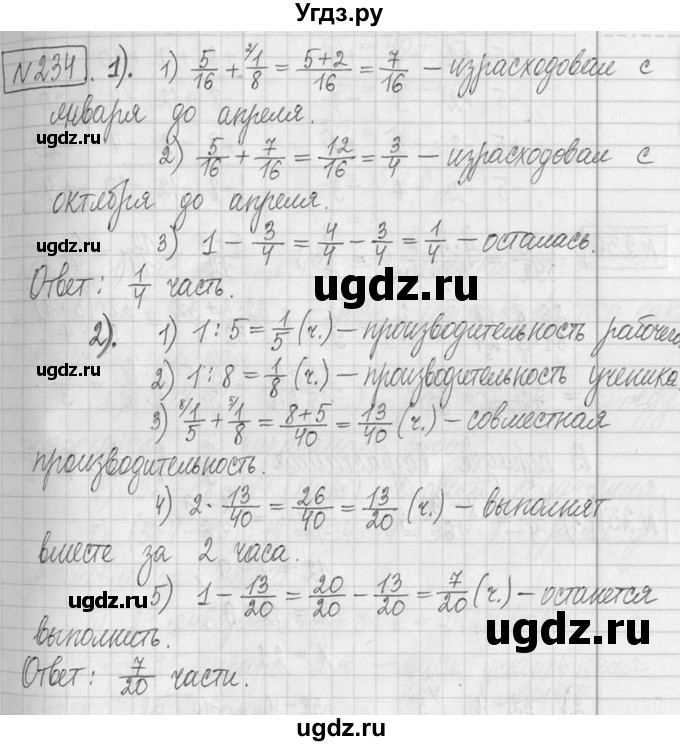 Угдз.ру
№234. 1). 1) 5/16 + ²⁄1/8 = 5+2/16 = 7/16 – израсходовал с
января до апреля.
ugdz.ru ugdz.ru
2) 5/16 + 7/16 = 12/16 = 3/4 – израсходовал с
октября до апреля.
ugdz.ru
3) 1 – 3/4 = 4/4 – 3/4 = 1/4 – осталась.
Ответ: 1/4 часть.
ugdz.ru
2). 1) 1 : 5 = 1/5 (ч.) – производительность рабочего.
ugdz.ru
2) 1 : 8 = 1/8 (ч.) – производительность ученика.
3) ⁸⁄1/5 + ⁵⁄1/8 = 8+5/40 = 13/40 (ч.) – совместная
производительность.
ugdz.ru ugdz.ru
4) 2 · 13/40 = 26/40 = 13/20 (ч.) – выполнят
вместе за 2 часа.
ugdz.ru
5) 1 – 13/20 = 20/20 – 13/20 = 7/20 (ч.) – останется
ugdz.ru
выполнить.
Ответ: 7/20 части.
ugdz.ru
ugdz.ru